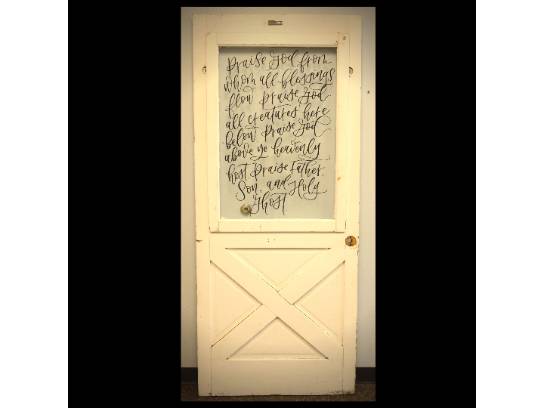 Praise God from
whom all blessings
flow praise God
all creatures here
below praise God
above ye heavenly
host Praise Father,
Son, and Holy
Ghost